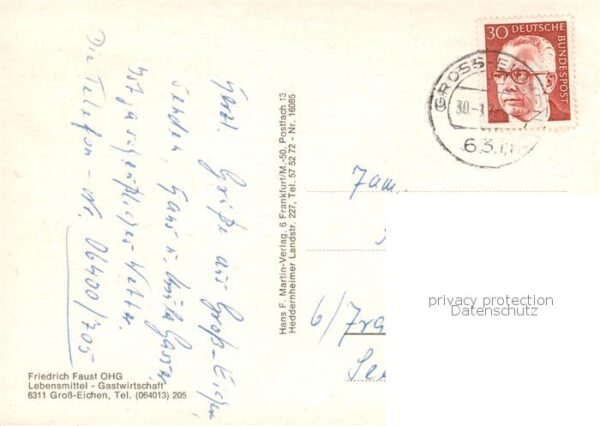 Herzl. Grüße aus Groß-Eichen
senden, Hans u.
Ist ja scheußliches Wetter.
Die Telefon-Nr. 06400/705
Friedrich Faust OHG
Lebensmittel - Gastwirtschaft
6311 Groß-Eichen, Tel. (064013) 205
Hans F. Martin-Verlag, 6 Frankfurt/M.-50, Postfach 13
Heddernheimer Landstr. 227, Tel. 57 52 72 - Nr. 16085
30 DEUTSCHE
BUNDESPOST
GROSS-EICHEN
30.-
631
Fam.
6/Fra
privacy protection
Datenschutz